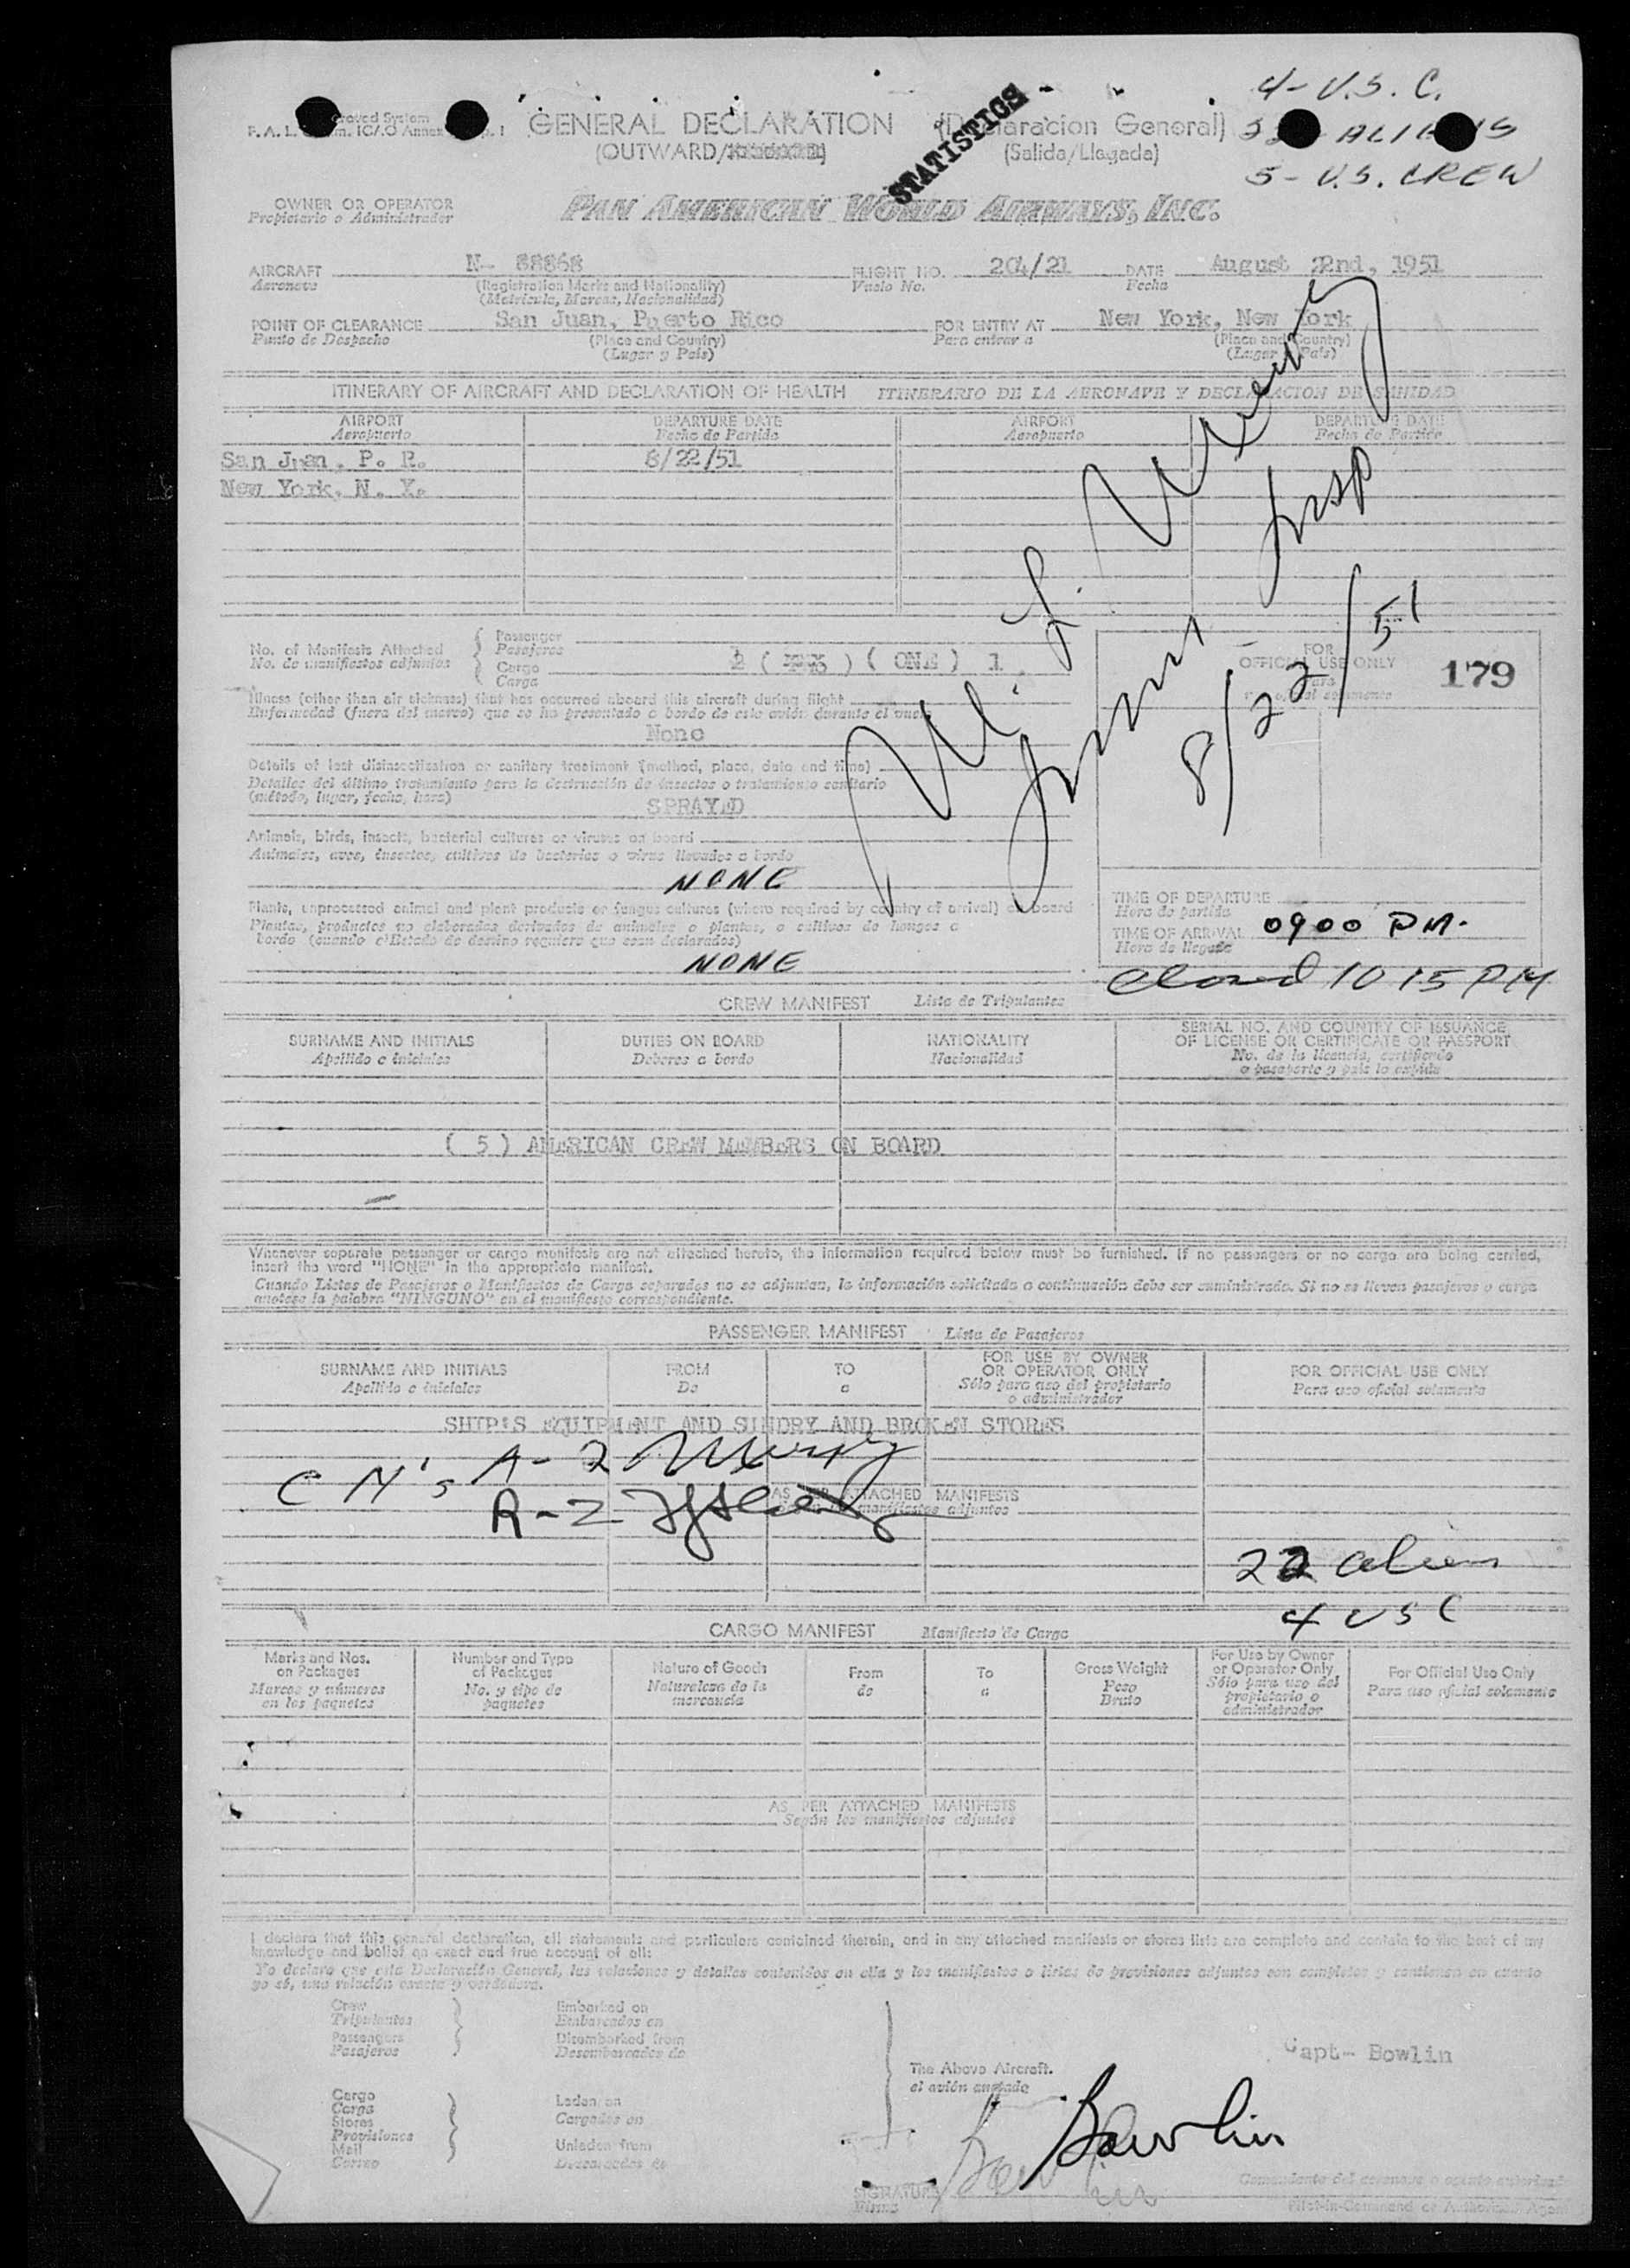 4- U.S. C.
GENERAL DECLARATION (Declaracion General)
ALIENS
(OUTWARD/
(Salida/Llegada)
STATISTICS
5- U.S. CREW
OWNER OR OPERATOR
Propietario o Administrador
PAN AMERICAN WORLD AIRWAYS, INC.
AIRCRAFT N- 88868 FLIGHT NO. 204/21 DATE August 22nd, 1951
Aeronave (Registration Marks and Nationality) Vuelo No. Fecha
(Matricula, Marcas, Nacionalidad)
POINT OF CLEARANCE San Juan, Puerto Rico FOR ENTRY AT New York, New York
Punto de Despacho (Place and Country) Para entrar a (Place and Country)
(Lugar y Pais) (Lugar y Pais)
ITINERARY OF AIRCRAFT AND DECLARATION OF HEALTH ITINERARIO DE LA AERONAVE Y DECLARACION DE SANIDAD
AIRPORT DEPARTURE DATE AIRPORT DEPARTURE DATE
Aeropuerto Fecha de Partida Aeropuerto Fecha de Partida
San Juan, P. R. 8/22/51
New York, N. Y.
Insp
8/22/51
No. of Manifests Attached Passenger
No. de manifiestos adjuntos Pasajeros
2 ( TWO ) ( ONE ) 1
Cargo
Carga
FOR
OFFICIAL USE ONLY 179
Illness (other than air sickness) that has occurred aboard this aircraft during flight
Enfermedad (fuera del mareo) que se ha presentado a bordo de este avión durante el vuelo
None
Details of last disinsectisation or sanitary treatment (method, place, date and time)
Detalles del último tratamiento para la destrucción de insectos o tratamiento sanitario
(método, lugar, fecha, hora)
SPRAYED
Animals, birds, insects, bacterial cultures or viruses on board
Animales, aves, insectos, cultivos de bacterias o virus llevados a bordo
NONE
Plants, unprocessed animal and plant products or fungus cultures (where required by country of arrival) on board
Plantas, productos no elaborados derivados de animales o plantas, o cultivos de hongos a
bordo (cuando el Estado de destino requiera que sean declarados)
NONE
TIME OF DEPARTURE
Hora de partida
TIME OF ARRIVAL 0900 PM.
Hora de llegada
10 15 PM
CREW MANIFEST Lista de Tripulantes
SURNAME AND INITIALS DUTIES ON BOARD NATIONALITY SERIAL NO. AND COUNTRY OF ISSUANCE
Apellido e iniciales Deberes a bordo Nacionalidad OF LICENSE OR CERTIFICATE OR PASSPORT
No. de la licencia, certificado
o pasaporte y país lo expide
( 5 ) AMERICAN CREW MEMBERS ON BOARD
Whenever separate passenger or cargo manifests are not attached hereto, the information required below must be furnished. If no passengers or no cargo are being carried,
insert the word "NONE" in the appropriate manifest.
Cuando Listas de Pasajeros o Manifiestos de Carga separados no se adjuntan, la información solicitada a continuación debe ser suministrada. Si no se llevan pasajeros o carga
anótese la palabra "NINGUNO" en el manifiesto correspondiente.
PASSENGER MANIFEST Lista de Pasajeros
SURNAME AND INITIALS FROM TO FOR USE BY OWNER FOR OFFICIAL USE ONLY
Apellido e iniciales De a OR OPERATOR ONLY Para uso oficial solamente
Sólo para uso del propietario
o administrador
SHIP'S EQUIPMENT AND SUNDRY AND BROKEN STORES
A-2
R-2
AS PER ATTACHED MANIFESTS
manifiestos adjuntos
22 alien
4 USC
CARGO MANIFEST Manifiesto de Carga
Marks and Nos. on Packages Number and Type of Packages Nature of Goods From To Gross Weight For Use by Owner or Operator Only For Official Use Only
Marcas y números en los paquetes No. y tipo de paquetes Naturaleza de la mercancía de a Peso Bruto Sólo para uso del propietario o administrador Para uso oficial solamente
AS PER ATTACHED MANIFESTS
Según los manifiestos adjuntos
I declare that this general declaration, all statements and particulars contained therein, and in any attached manifests or stores lists are complete and contain to the best of my
knowledge and belief an exact and true account of all:
Yo declaro que esta Declaración General, las relaciones y detalles contenidos en ella y los manifiestos o listas de provisiones adjuntos son completos y contienen en cuanto
yo sé, una relación exacta y verdadera.
Crew Embarked on
Tripulantes Embarcados en
Passengers Disembarked from
Pasajeros Desembarcados de
Capt- Bowlin
The Above Aircraft.
el avión anotado
Cargo Laden on
Carga Cargados en
Stores
Provisiones
Mail Unladen from
Correo Descargados de
Bowlin
SIGNATURE
Firma
Comandante del aeronave o agente autorizado
Pilot-in-Command or Authorized Agent